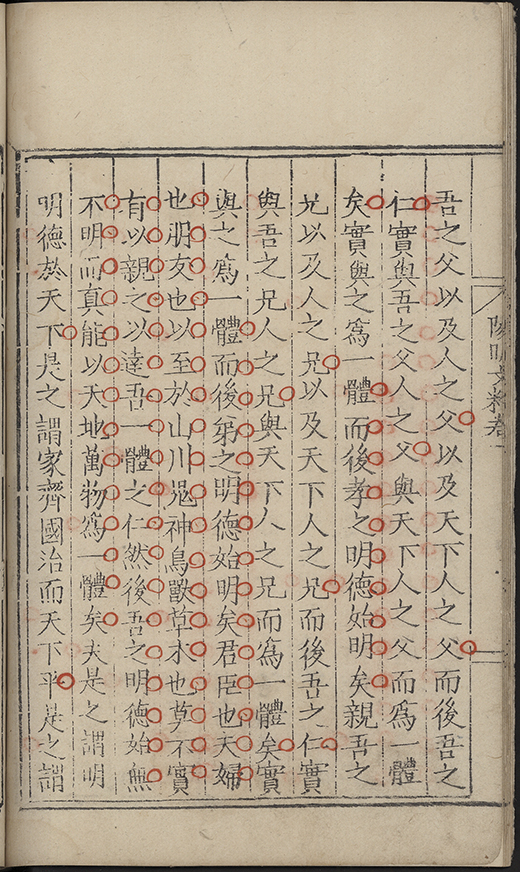 陽明文粹卷一
吾之父以及人之父以及天下人之父而後吾之
仁實與吾之父人之父與天下人之父而爲一體
矣實與之爲一體而後孝之明德始明矣親吾之
兄以及人之兄以及天下人之兄而後吾之仁實
與吾之兄人之兄與天下人之兄而爲一體矣實
與之爲一體而後弟之明德始明矣君臣也夫婦
也朋友也以至於山川鬼神鳥獸草木也莫不實
有以親之以達吾一體之仁然後吾之明德始無
不明而真能以天地萬物爲一體矣夫是之謂明
明德於天下是之謂家齊國治而天下平是之謂